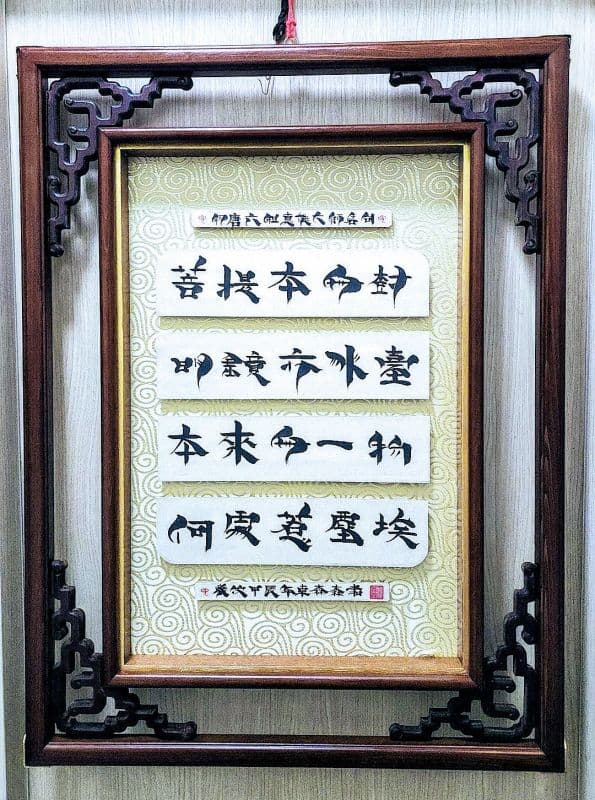 唐六祖惠能大師名
菩提本無樹
明鏡亦非臺
本來無一物
何處惹塵埃
歲次甲辰年